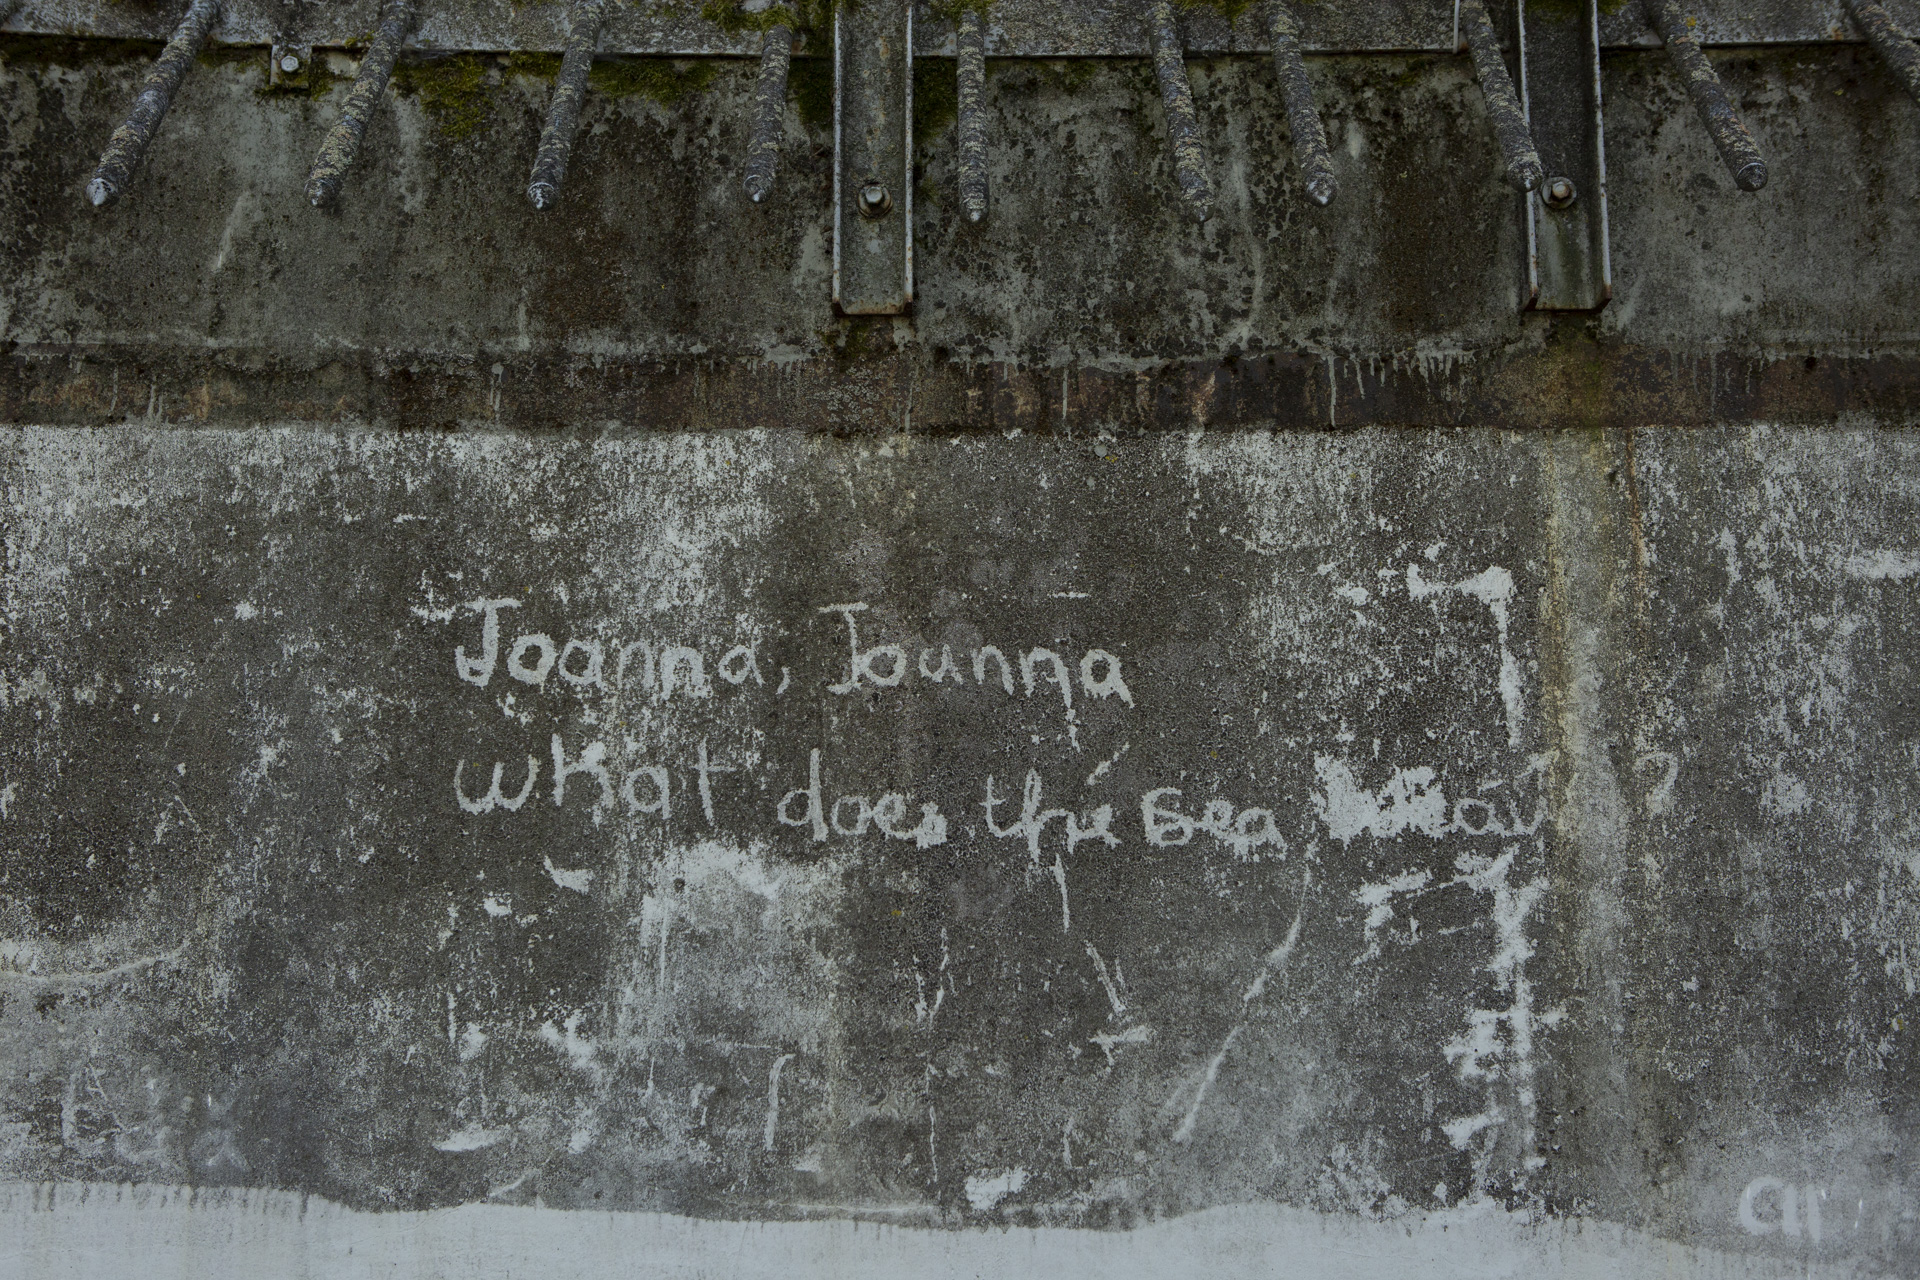 Joanna, Joanna
what does the sea ?